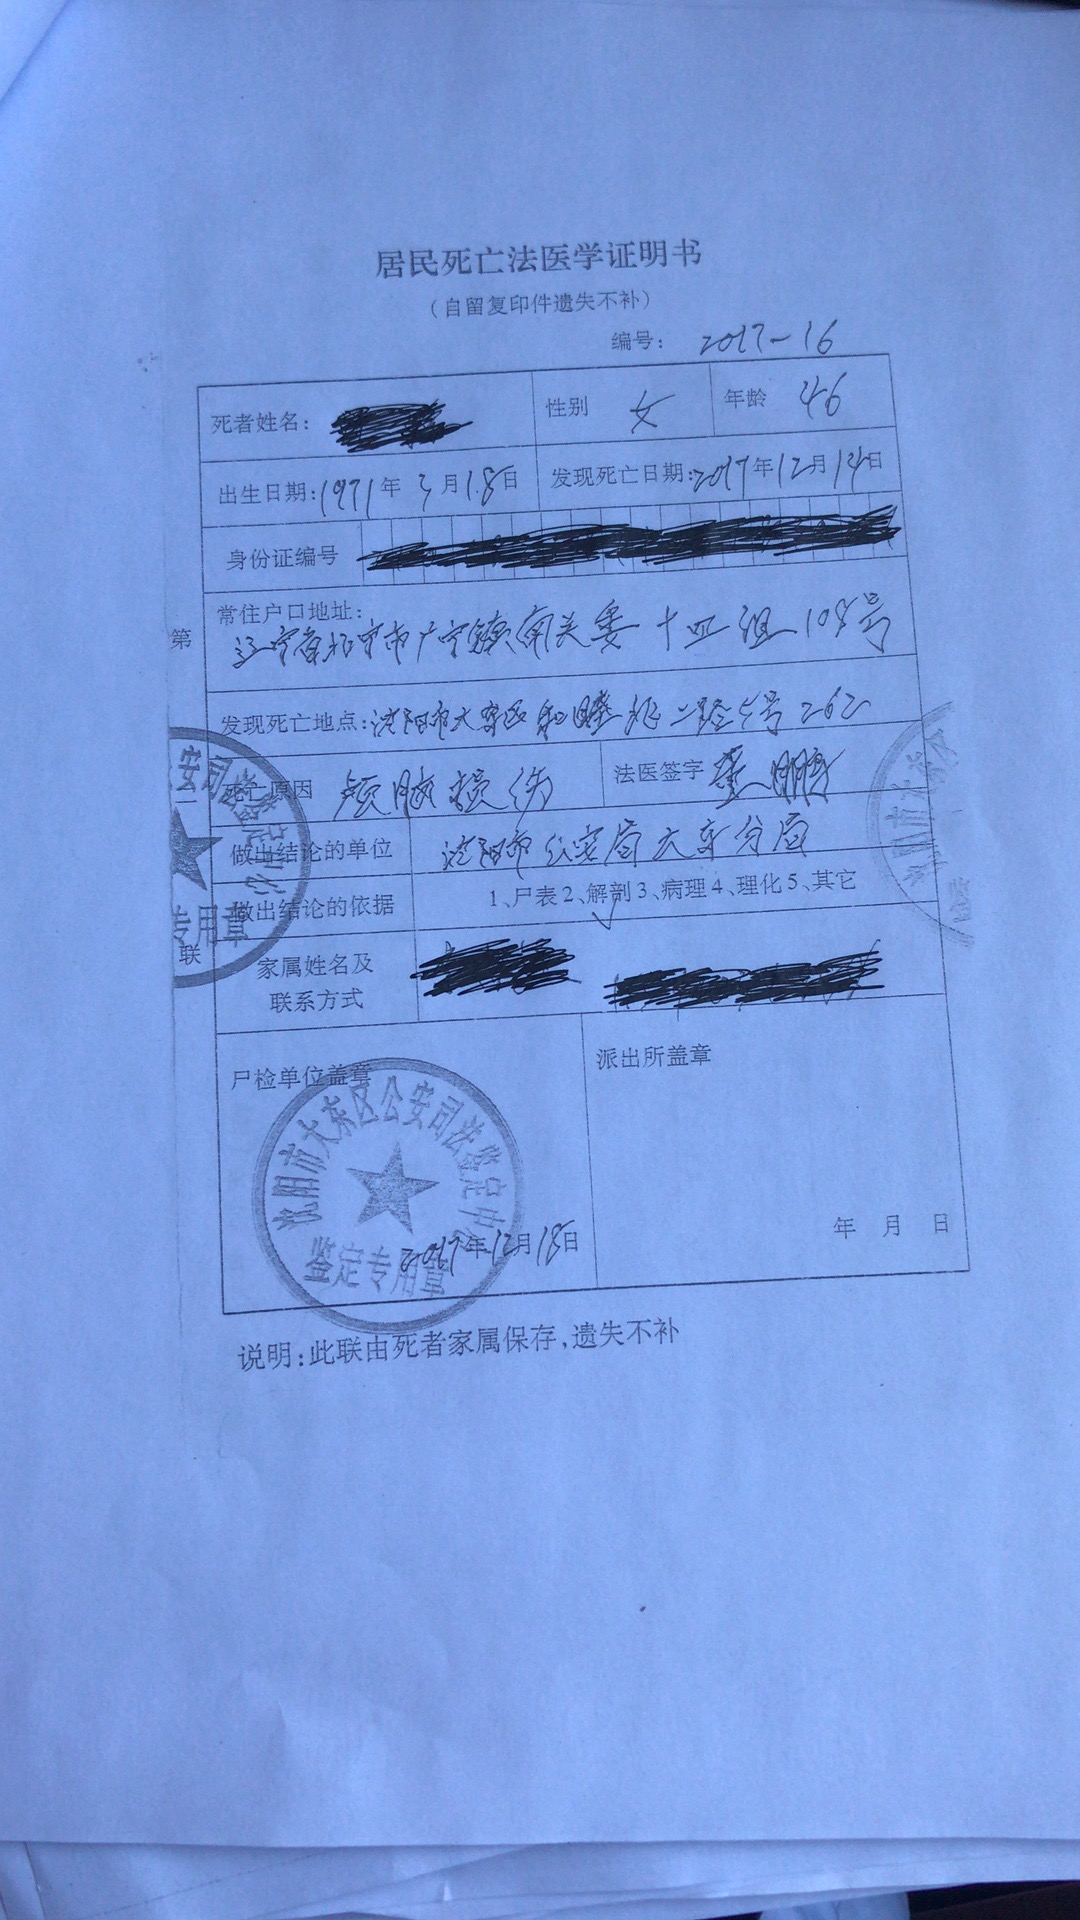 居民死亡法医学证明书
（自留复印件遗失不补）
编号： 2017-16
死者姓名： 性别 女 年龄 46
出生日期：1971年3月18日 发现死亡日期：2017年12月14日
身份证编号
常住户口地址：
辽宁省北宁市广宁镇南关委十四组108号
发现死亡地点：沈阳市大东区和睦北二路5号262
死亡原因 颅脑损伤 法医签字 董鹏
做出结论的单位 沈阳市公安局大东分局
做出结论的依据 1、尸表2、解剖3、病理4、理化5、其它
家属姓名及
联系方式
尸检单位盖章 派出所盖章
沈阳市大东区公安司法鉴定中心
鉴定专用章
2017年12月18日
年 月 日
说明：此联由死者家属保存，遗失不补
第
联
安司法鉴定中心
专用章